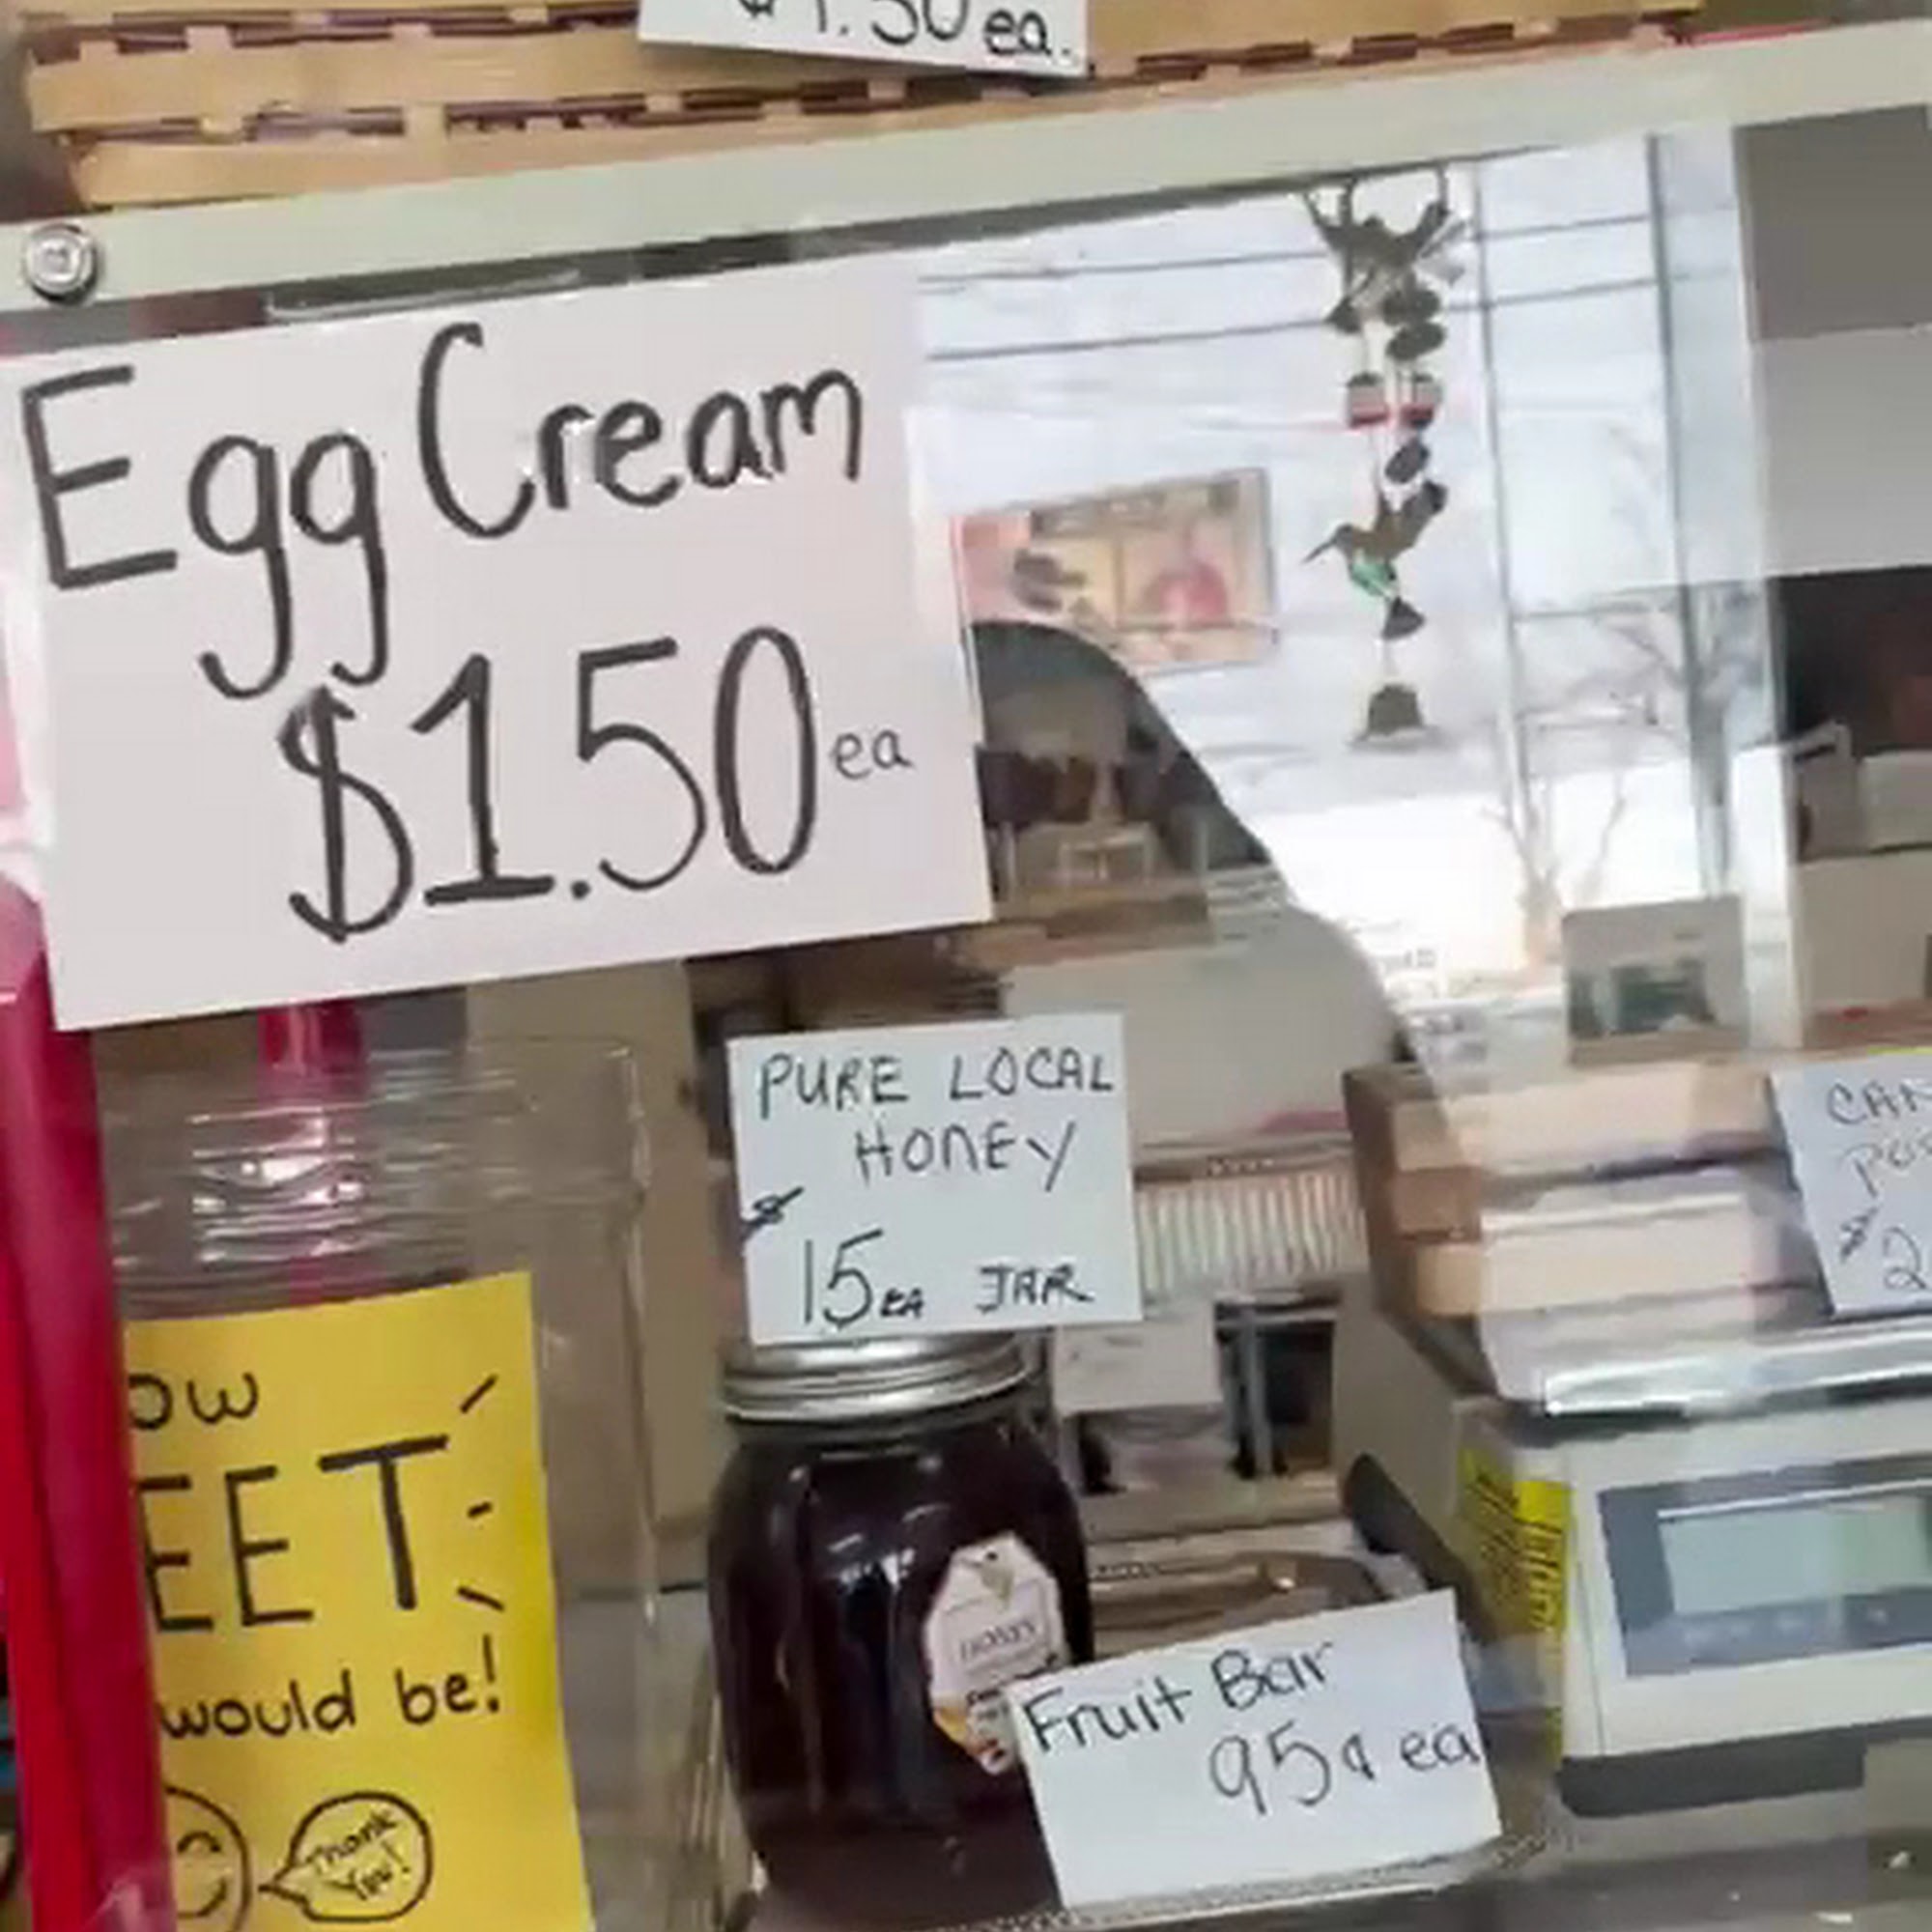 $1.50 ea.
Egg Cream
$1.50 ea
PURE LOCAL
HONEY
$
15 EA JAR
CAN
2
OW
EET
would be!
Thank
You!
HONEY
Fruit Bar
95¢ ea